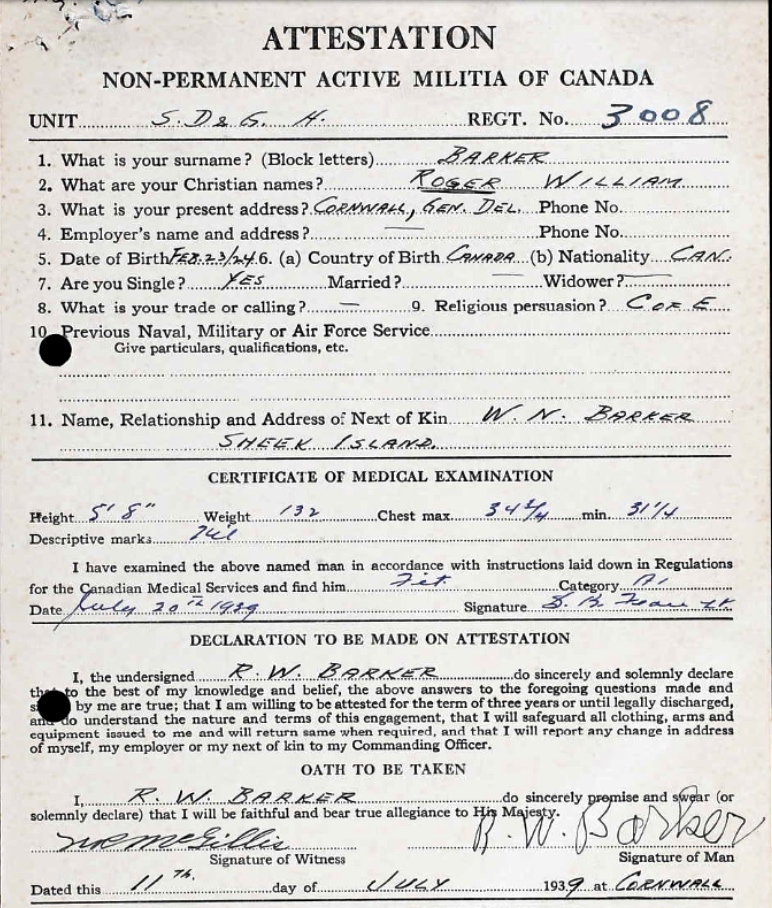 ATTESTATION
NON-PERMANENT ACTIVE MILITIA OF CANADA
UNIT S. D & G. H. REGT. No. 3008
1. What is your surname? (Block letters) BARKER
2. What are your Christian names? ROGER WILLIAM
3. What is your present address? CORNWALL, GEN. DEL. Phone No.
4. Employer's name and address? — Phone No.
5. Date of Birth FEB. 23/24 6. (a) Country of Birth CANADA (b) Nationality CAN.
7. Are you Single? YES Married? — Widower? —
8. What is your trade or calling? — 9. Religious persuasion? C OF E
10. Previous Naval, Military or Air Force Service
Give particulars, qualifications, etc.
11. Name, Relationship and Address of Next of Kin W. N. BARKER
SHEEK ISLAND.
CERTIFICATE OF MEDICAL EXAMINATION
Height 5' 8" Weight 132 Chest max. 34 3/4 min. 31 1/4
Descriptive marks
I have examined the above named man in accordance with instructions laid down in Regulations
for the Canadian Medical Services and find him Fit. Category A1
Date July 20th 1939 Signature
DECLARATION TO BE MADE ON ATTESTATION
I, the undersigned R. W. BARKER do sincerely and solemnly declare
that to the best of my knowledge and belief, the above answers to the foregoing questions made and
by me are true; that I am willing to be attested for the term of three years or until legally discharged,
and do understand the nature and terms of this engagement, that I will safeguard all clothing, arms and
equipment issued to me and will return same when required, and that I will report any change in address
of myself, my employer or my next of kin to my Commanding Officer.
OATH TO BE TAKEN
I, R. W. BARKER do sincerely promise and swear (or
solemnly declare) that I will be faithful and bear true allegiance to His Majesty.
McGillis R. W. Barker
Signature of Witness Signature of Man
Dated this 11TH. day of JULY 1939 at CORNWALL